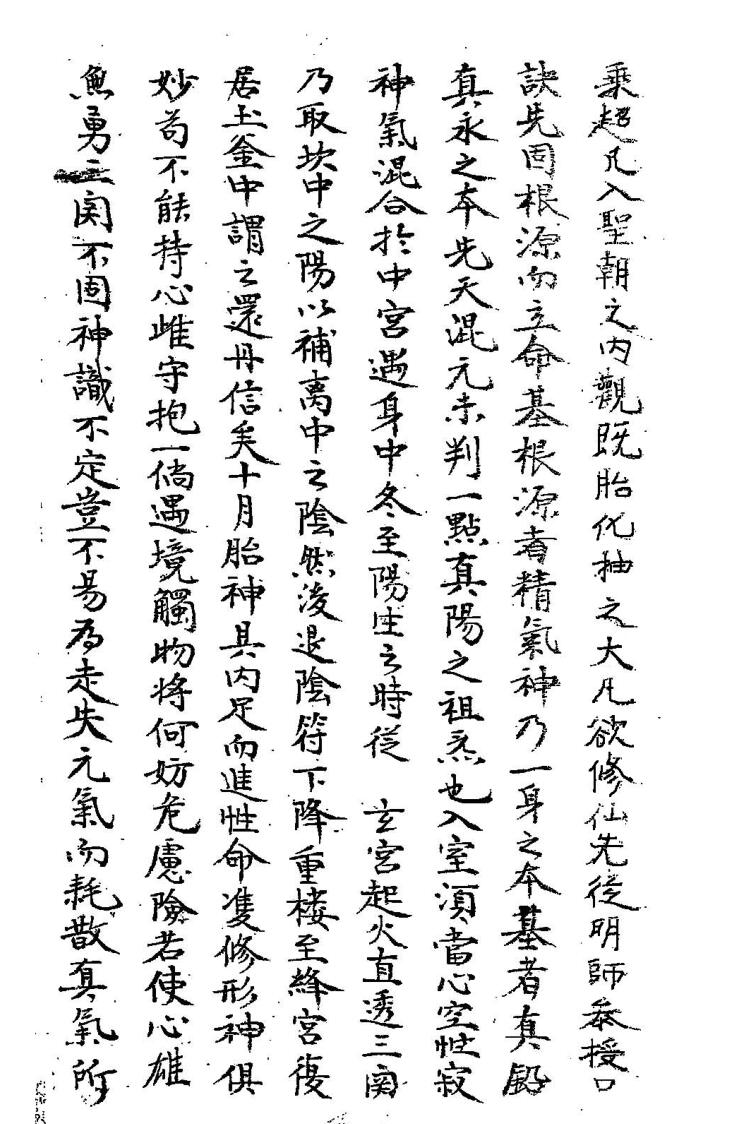 乘超凡入聖朝之内觀既胎化抽之大凡欲修仙先從明師叅授口
訣先固根源而立命基根源者精氣神乃一身之本基者真鉛
真汞之本先天混元未判一點真陽之祖炁也入室湏當心空性寂
神氣混合扵中宮遇身中冬至陽生之時從 玄宮起火直透三関
乃取坎中之陽以補离中之陰然後退陰符下降重樓至絳宮復
居土釜中謂之還丹信矣十月胎神具内足而進性命双修形神俱
妙苟不能持心雌守抱一倘遇境觸物将何妨危慮險若使心雄
無勇三関不固神識不定豈不易為走失元氣而耗散真氣所